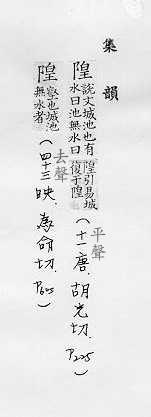 集韻
隍 說文城池也有水曰池無水曰隍引易城復于隍(十一唐.胡光切.P225
平聲
隍 壑也城池無水者(四十三映.為命切.P605)
去聲